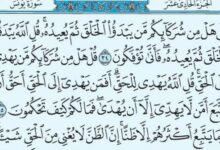 الجزء الحادى عشر سورة يونس
قُلْ هَلْ مِن شَرَكَآئِكُم مَّن يَبْدَؤُا الْخَلْقَ ثُمَّ يُعِيدُهُ قُلِ اللَّهُ يَبْدَؤُا
الْخَلْقَ ثُمَّ يُعِيدُهُ فَأَنَّى تُؤْفَكُونَ ٣٤ قُلْ هَلْ مِن شُرَكَآئِكُم مَّن يَهْدِى
إِلَى الْحَقِّ قُلِ اللَّهُ يَهْدِى لِلْحَقِّ أَفَمَن يَهْدِى إِلَى الْحَقِّ أَحَقُّ أَن
يُتَّبَعَ أَمَّن لَّا يَهِدِّى إِلَّا أَن يُهْدَى فَمَا لَكُمْ كَيْفَ تَحْكُمُونَ ٣٥
وَمَا يَتَّبِعُ أَكْثَرُهُمْ إِلَّا ظَنًّا إِنَّ الظَّنَّ لَا يُغْنِى مِنَ الْحَقِّ شَيْئًا